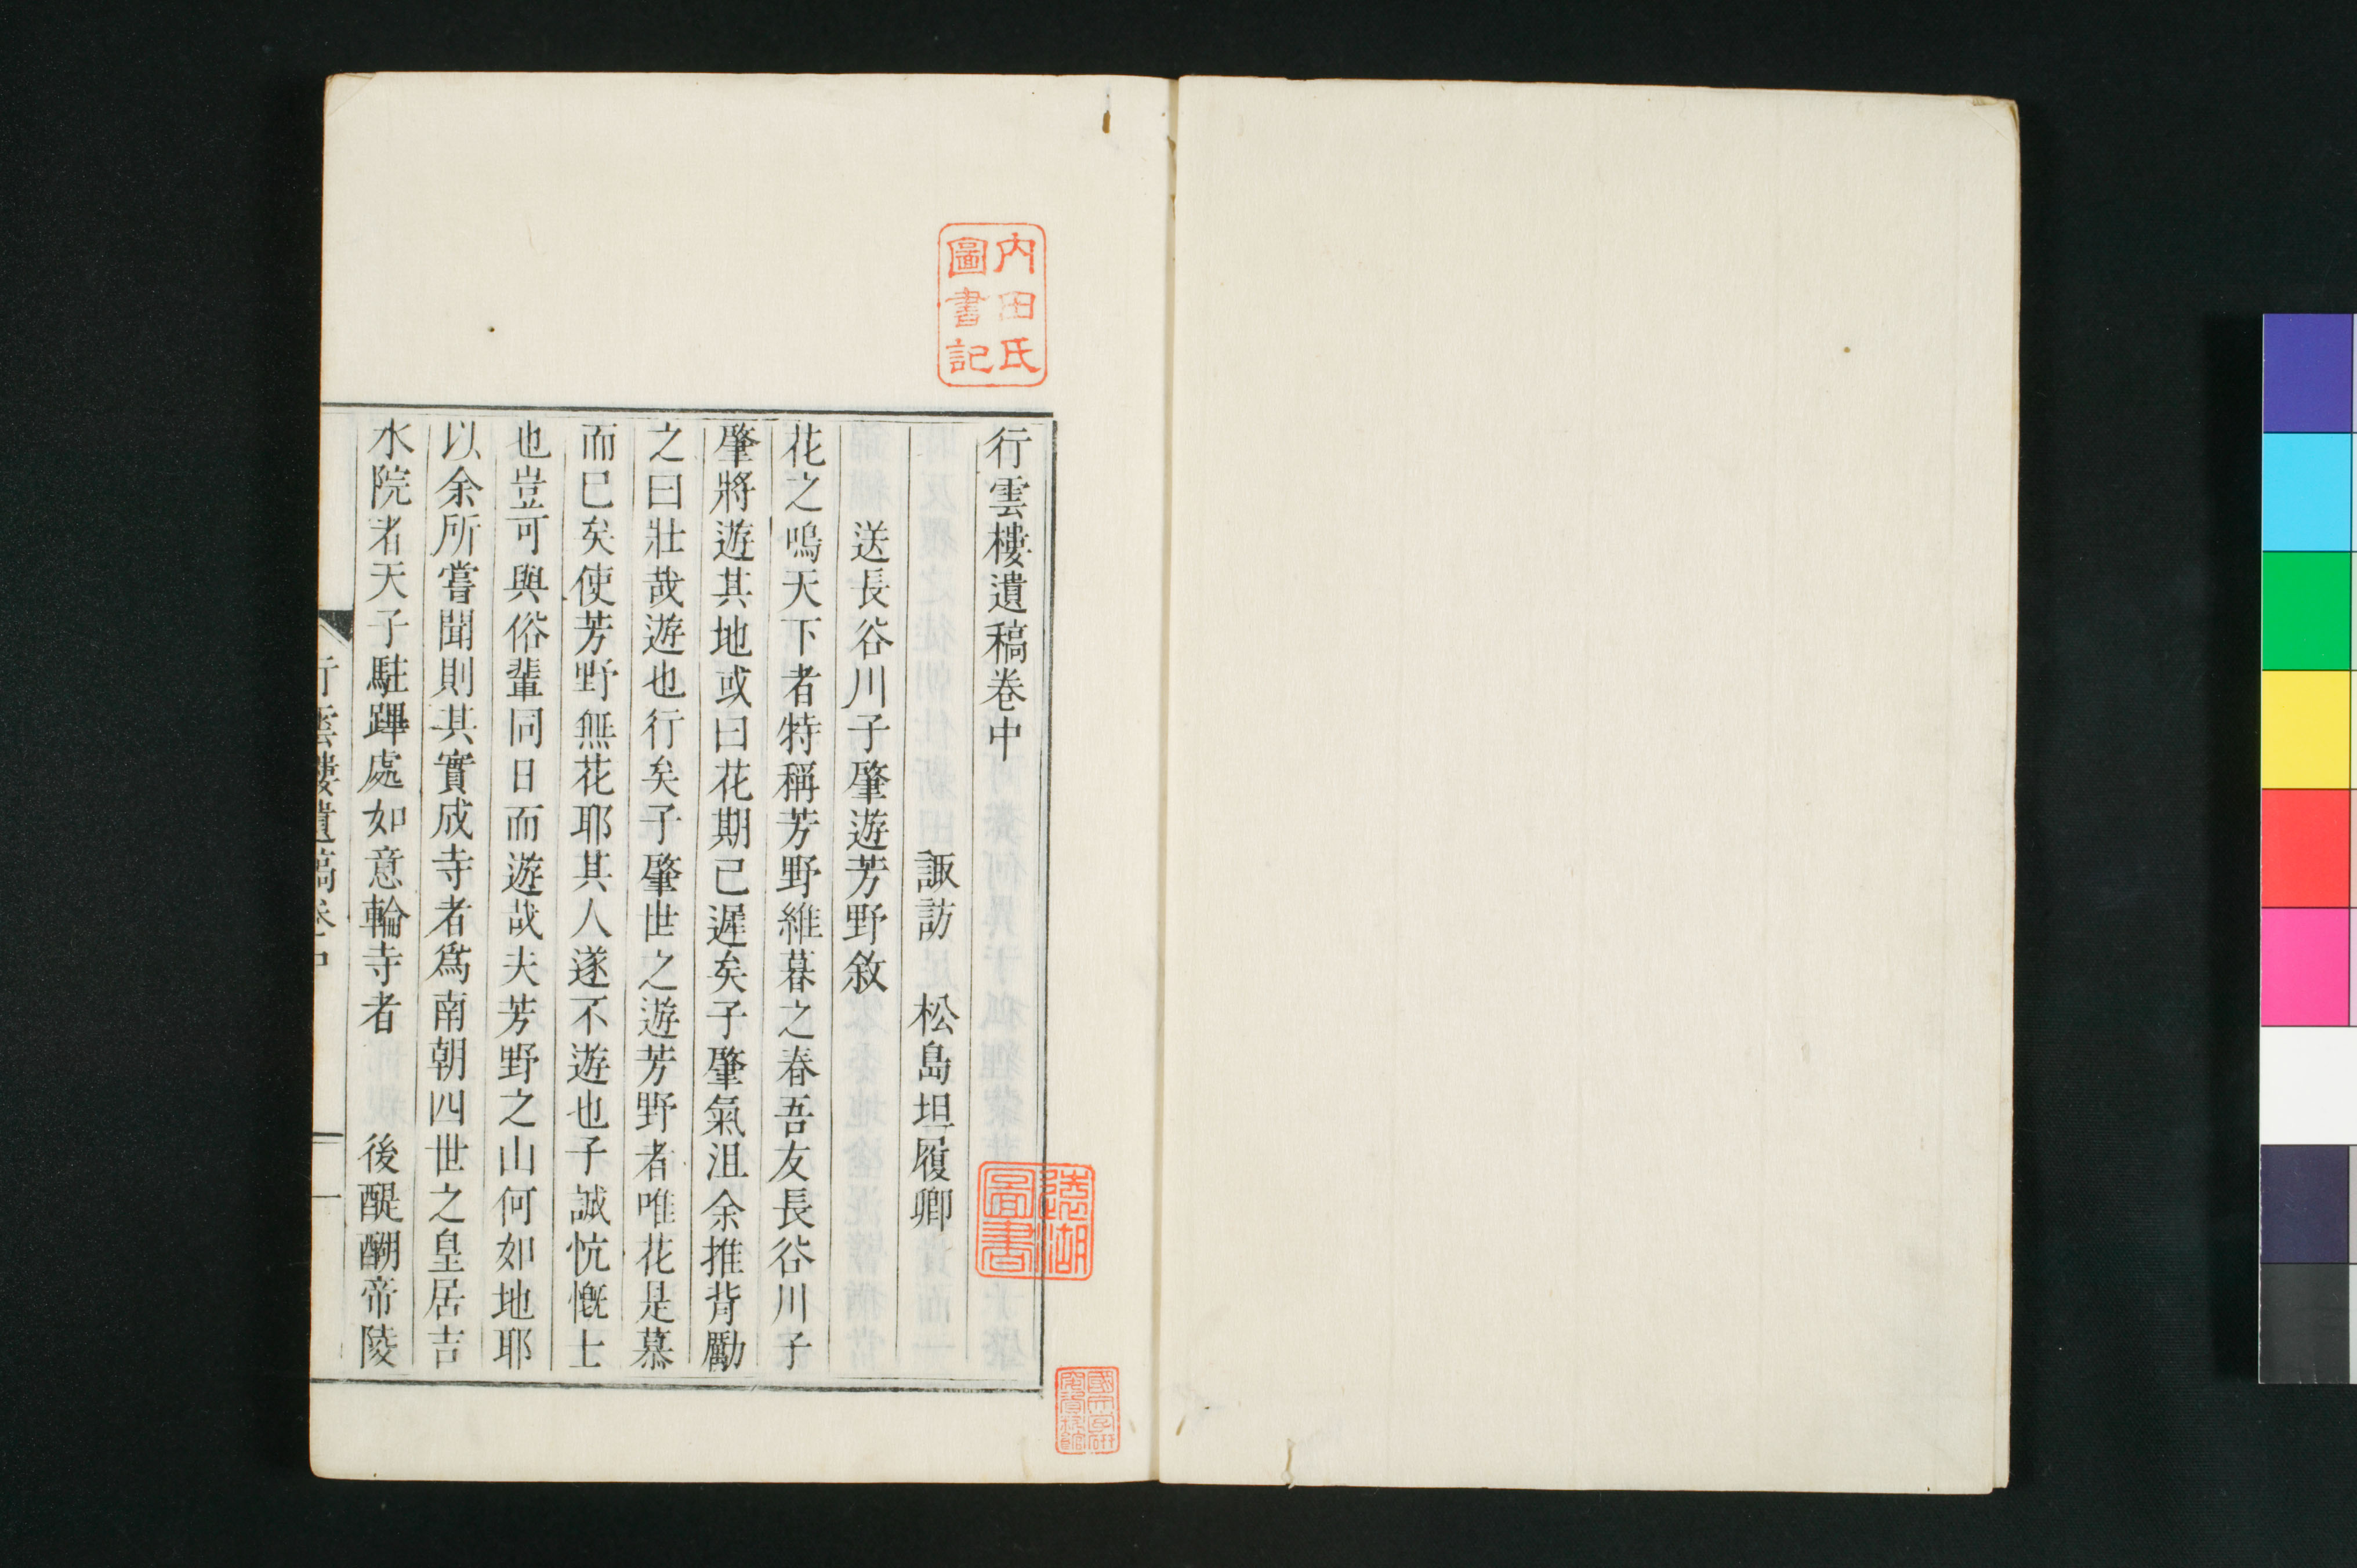 内田氏
圖書記
行雲樓遺稿卷中
諏訪 松島坦履卿
送長谷川子肇遊芳野敘
花之鳴天下者特稱芳野維暮之春吾友長谷川子
肇將遊其地或曰花期已遲矣子肇氣沮余推背勵
之曰壯哉遊也行矣子肇世之遊芳野者唯花是慕
而已矣使芳野無花耶其人遂不遊也子誠忼慨士
也豈可與俗輩同日而遊哉夫芳野之山何如地耶
以余所嘗聞則其實成寺者爲南朝四世之皇居吉
水院者天子駐蹕處如意輪寺者 後醍醐帝陵
行雲樓遺稿卷中
一
湖
圖書